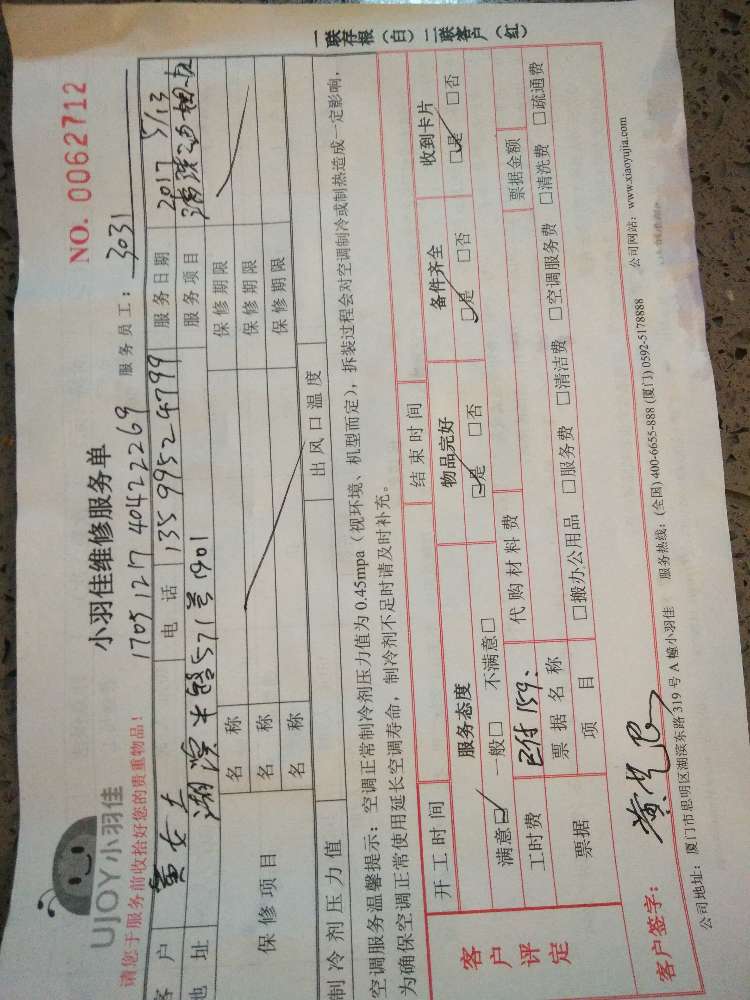 UJOY小羽佳
小羽佳维修服务单
NO. 0062712
请您于服务前收拾好您的贵重物品!
1705121740422269
服务员工: 3031
客户 黄女士 电话 13599524799 服务日期 2017 5/13
地址 湖滨中路571号1901 服务项目 清洗油烟机
保修项目 名称 保修期限
名称 保修期限
名称 保修期限
制冷剂压力值 出风口温度
空调服务温馨提示: 空调正常制冷剂压力值为0.45mpa(视环境、机型而定), 拆装过程会对空调制冷或制热造成一定影响,
为确保空调正常使用延长空调寿命, 制冷剂不足时请及时补充。
客户评定 开工时间 结束时间
服务态度 物品完好 备件齐全 收到卡片
满意☑ 一般□ 不满意□ ☑是 □否 ☑是 □否 ☑是 □否
工时费 已付159、 代购材料费
票据 票据名称 票据金额
项目 □搬办公用品 □服务费 □清洁费 □空调服务费 □清洗费 □疏通费
客户签字:
公司地址: 厦门市思明区湖滨东路319号A幢小羽佳 服务热线: (全国) 400-6655-888 (厦门) 0592-5178888 公司网站: www.xiaoyujia.com
一联存根(白) 二联客户(红)